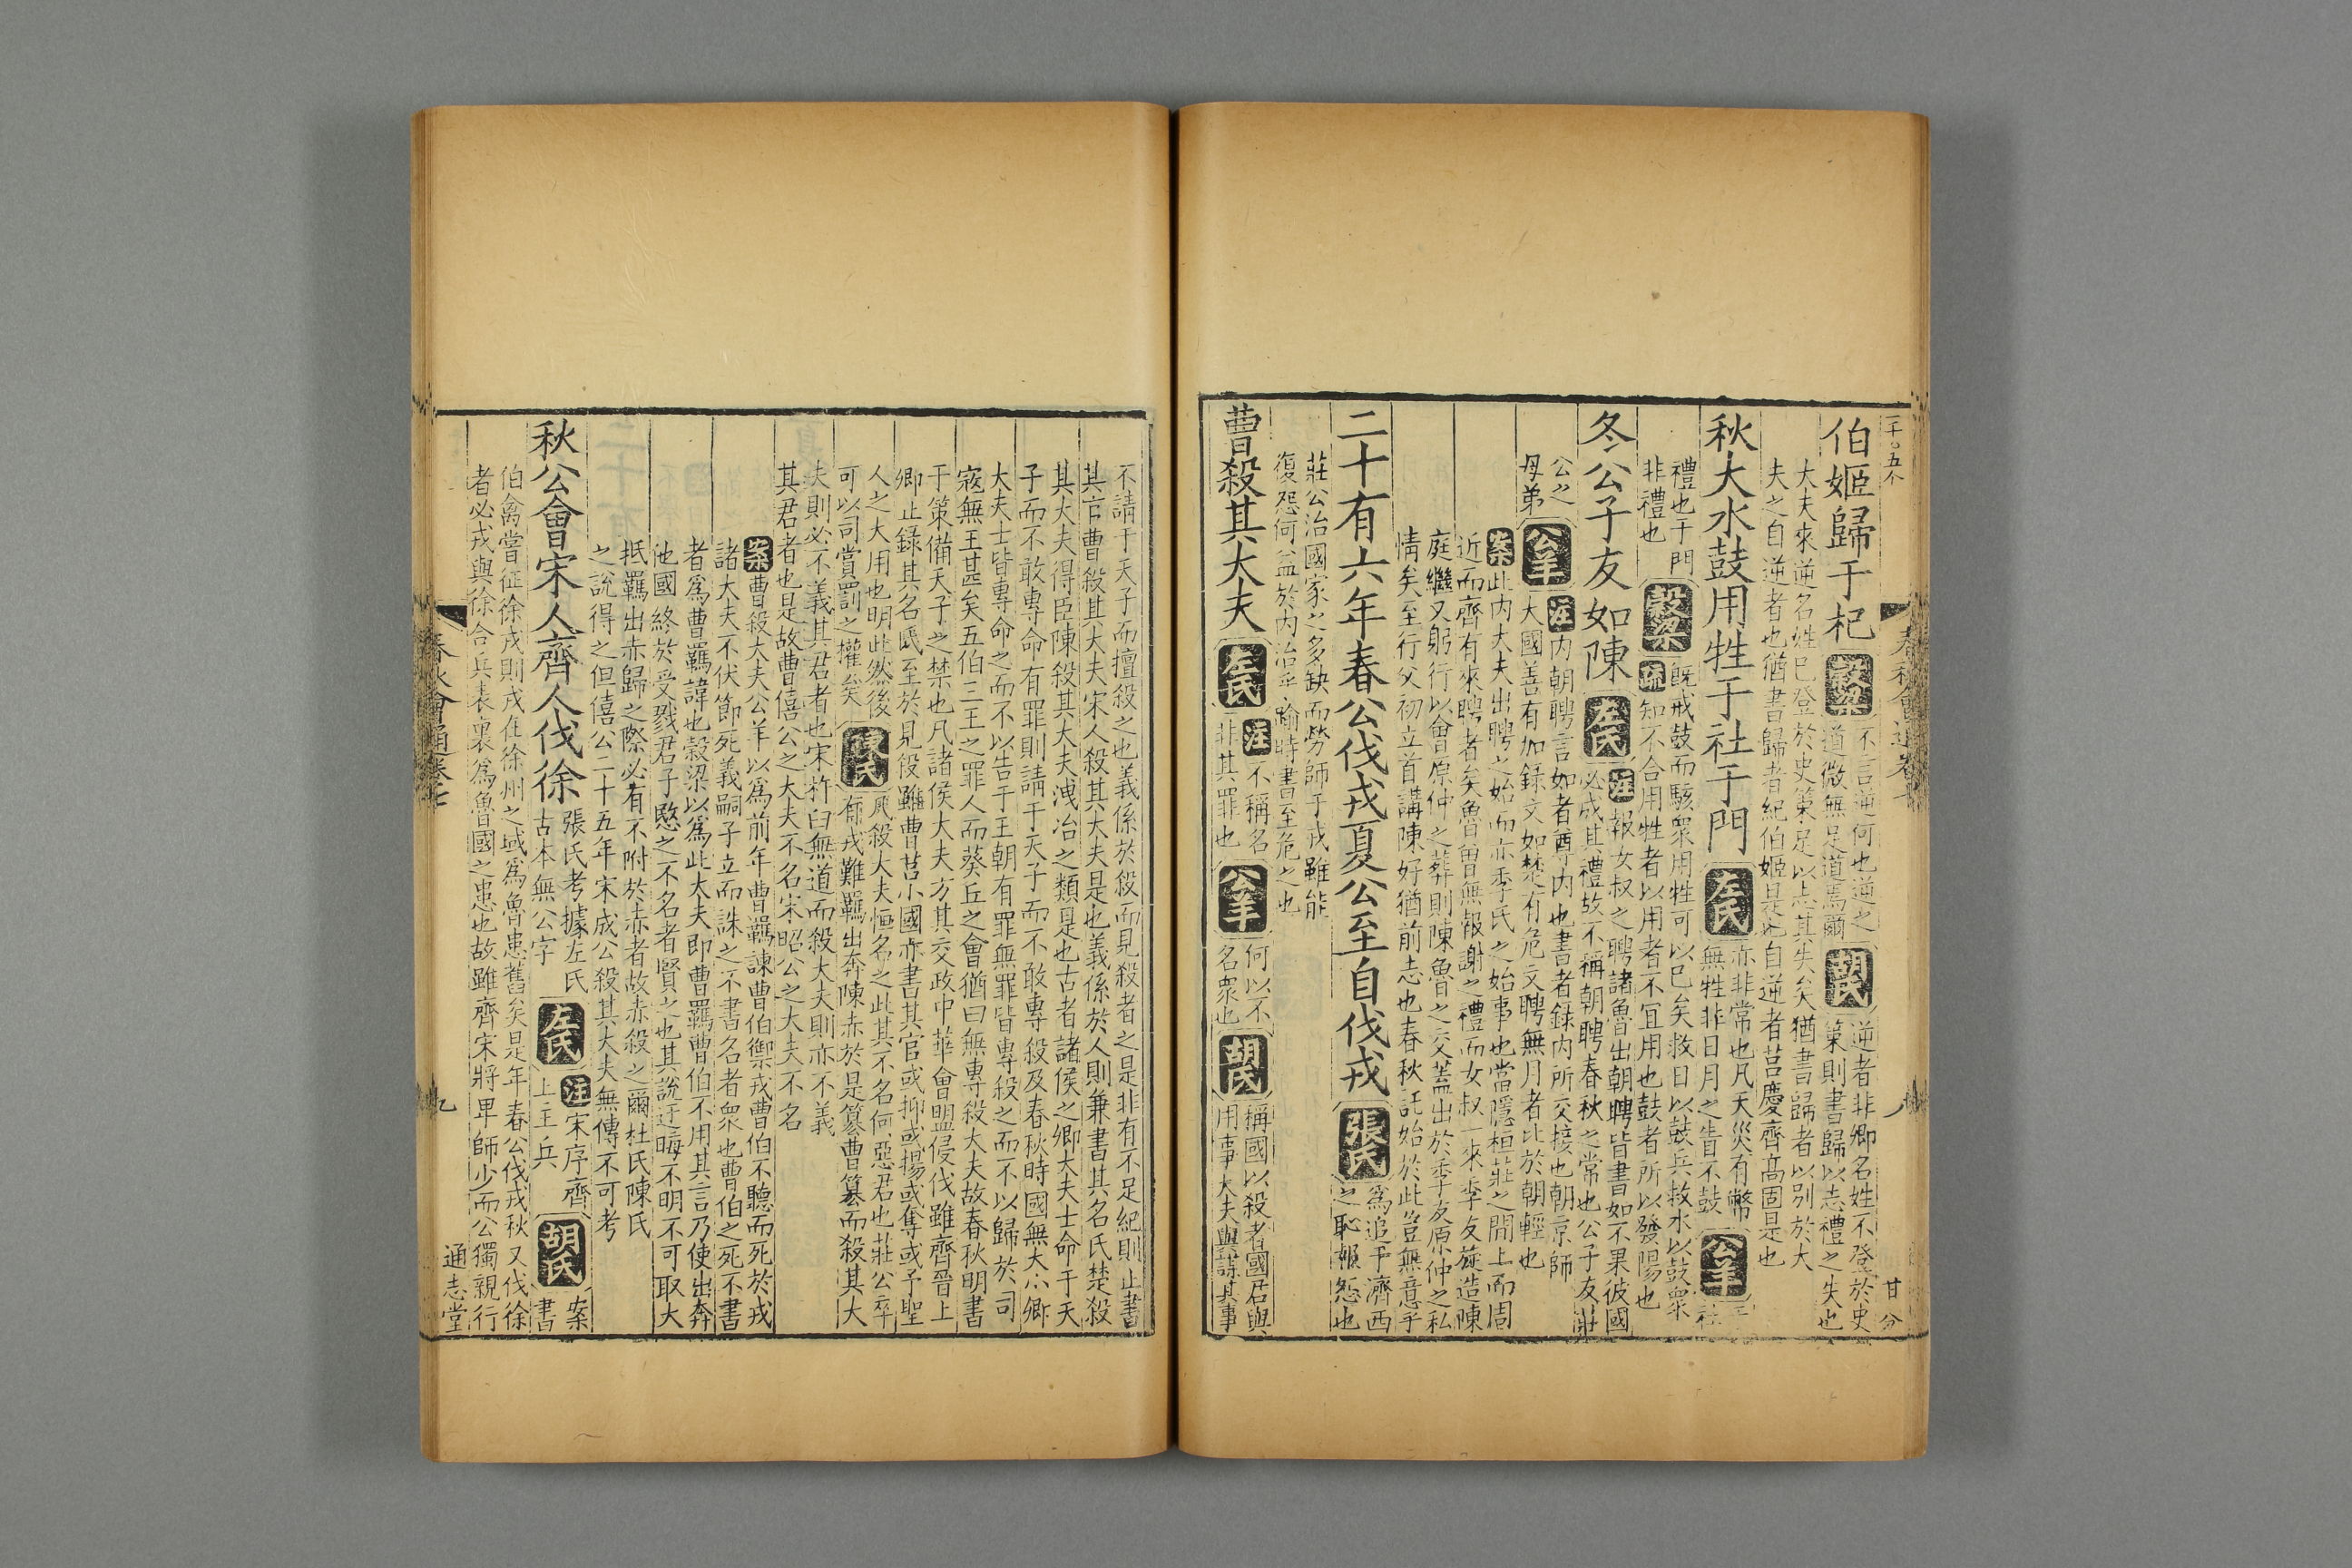 春秋會通卷七
八
甘分
伯姬歸于杞
穀梁
不言逆何也逆之
道微無足道焉爾
胡氏
逆者非卿名姓不登於史
策則書歸以志禮之失也
大夫來逆名姓已登於史策足以志其失矣猶書歸者以別於大
夫之自逆者也猶書歸者紀伯姬是也自逆者莒慶齊高固是也
秋大水鼓用牲于社于門
左氏
亦非常也凡天災有幣
無牲非日月之眚不鼓
公羊
于
社
禮也于門
非禮也
穀梁
疏
既戒鼓而駭衆用牲可以已矣救日以鼓兵救水以鼓衆
知不合用牲者以用者不宜用也鼓者所以發陽也
冬公子友如陳
左氏
注報女叔之聘諸魯出朝聘皆書如不果彼國
必成其禮故不稱朝聘春秋之常也公子友莊
公之
母弟
公羊
注内朝聘言如者尊内也書者錄内所交接也朝京師
大國善有加錄文如楚有危文聘無月者比於朝輕也
案此内大夫出聘之始而亦季氏之始事也當隱桓莊之間上而周
近而齊有來聘者矣魯曾無報謝之禮而女叔一來季友旋造陳
庭繼又躬行以會原仲之葬則陳魯之交蓋出於季友原仲之私
情矣至行父初立首講陳好猶前志也春秋託始於此豈無意乎
二十有六年春公伐戎夏公至自伐戎
張氏
爲追于濟西
之恥報怨也
莊公治國家之多缺而勞師于戎雖能
復怨何益於内治乎踰時書至危之也
曹殺其大夫
左氏
注不稱名
非其罪也
公羊
何以不
名衆也
胡氏
稱國以殺者國君與
用事大夫與謀其事
不請于天子而擅殺之也義係於殺而見殺者之是非有不足紀則止書
其官曹殺其大夫宋人殺其大夫是也義係於人則兼書其名氏楚殺
其大夫得臣陳殺其大夫洩冶之類是也古者諸侯之卿大夫士命于天
子而不敢專命有罪則請于天子而不敢專殺及春秋時國無大小卿
大夫士皆專命之而不以告于王朝有罪無罪皆專殺之而不以歸於司
寇無王甚矣五伯三王之罪人而葵丘之會猶曰無專殺大夫故春秋明書
于策備天子之禁也凡諸侯大夫方其交政中華會盟侵伐雖齊晉上
卿止錄其名氏至於見殺雖曹莒小國亦書其官或抑或揚或奪或予聖
人之大用也明此然後
可以司賞罰之權矣
陳氏
凡殺大夫恒名之此其不名何惡君也莊公卒
有戎難羈出奔陳赤於是篡曹篡而殺其大
夫則必不義其君者也宋杵臼無道而殺大夫則亦不義
其君者也是故曹僖公之大夫不名宋昭公之大夫不名
案曹殺大夫公羊以爲前年曹羈諫曹伯禦戎曹伯不聽而死於戎
諸大夫不伏節死義嗣子立而誅之不書名者衆也曹伯之死不書
者爲曹羈諱也穀梁以爲此大夫即曹羈曹伯不用其言乃使出奔
他國終於受戮君子愍之不名者賢之也其說迂晦不明不可取大
抵羈出赤歸之際必有不附於赤者故赤殺之爾杜氏陳氏
之說得之但僖公二十五年宋成公殺其大夫無傳不可考
秋公會宋人齊人伐徐
張氏考據左氏
古本無公字
左氏
注宋序齊
上主兵
胡氏
案
書
伯禽嘗征徐戎則戎在徐州之域爲魯患舊矣是年春公伐戎秋又伐徐
者必戎與徐合兵表裏爲魯國之患也故雖齊宋將卑師少而公獨親行
春秋會通卷七
九
通志堂